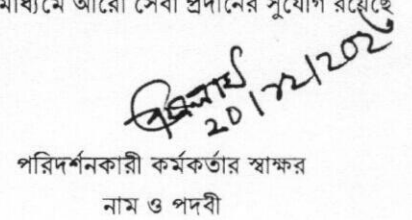 মাধ্যমে আরো সেবা প্রদানের সুযোগ রয়েছে
পরিদর্শনকারী কর্মকর্তার স্বাক্ষর
নাম ও পদবী